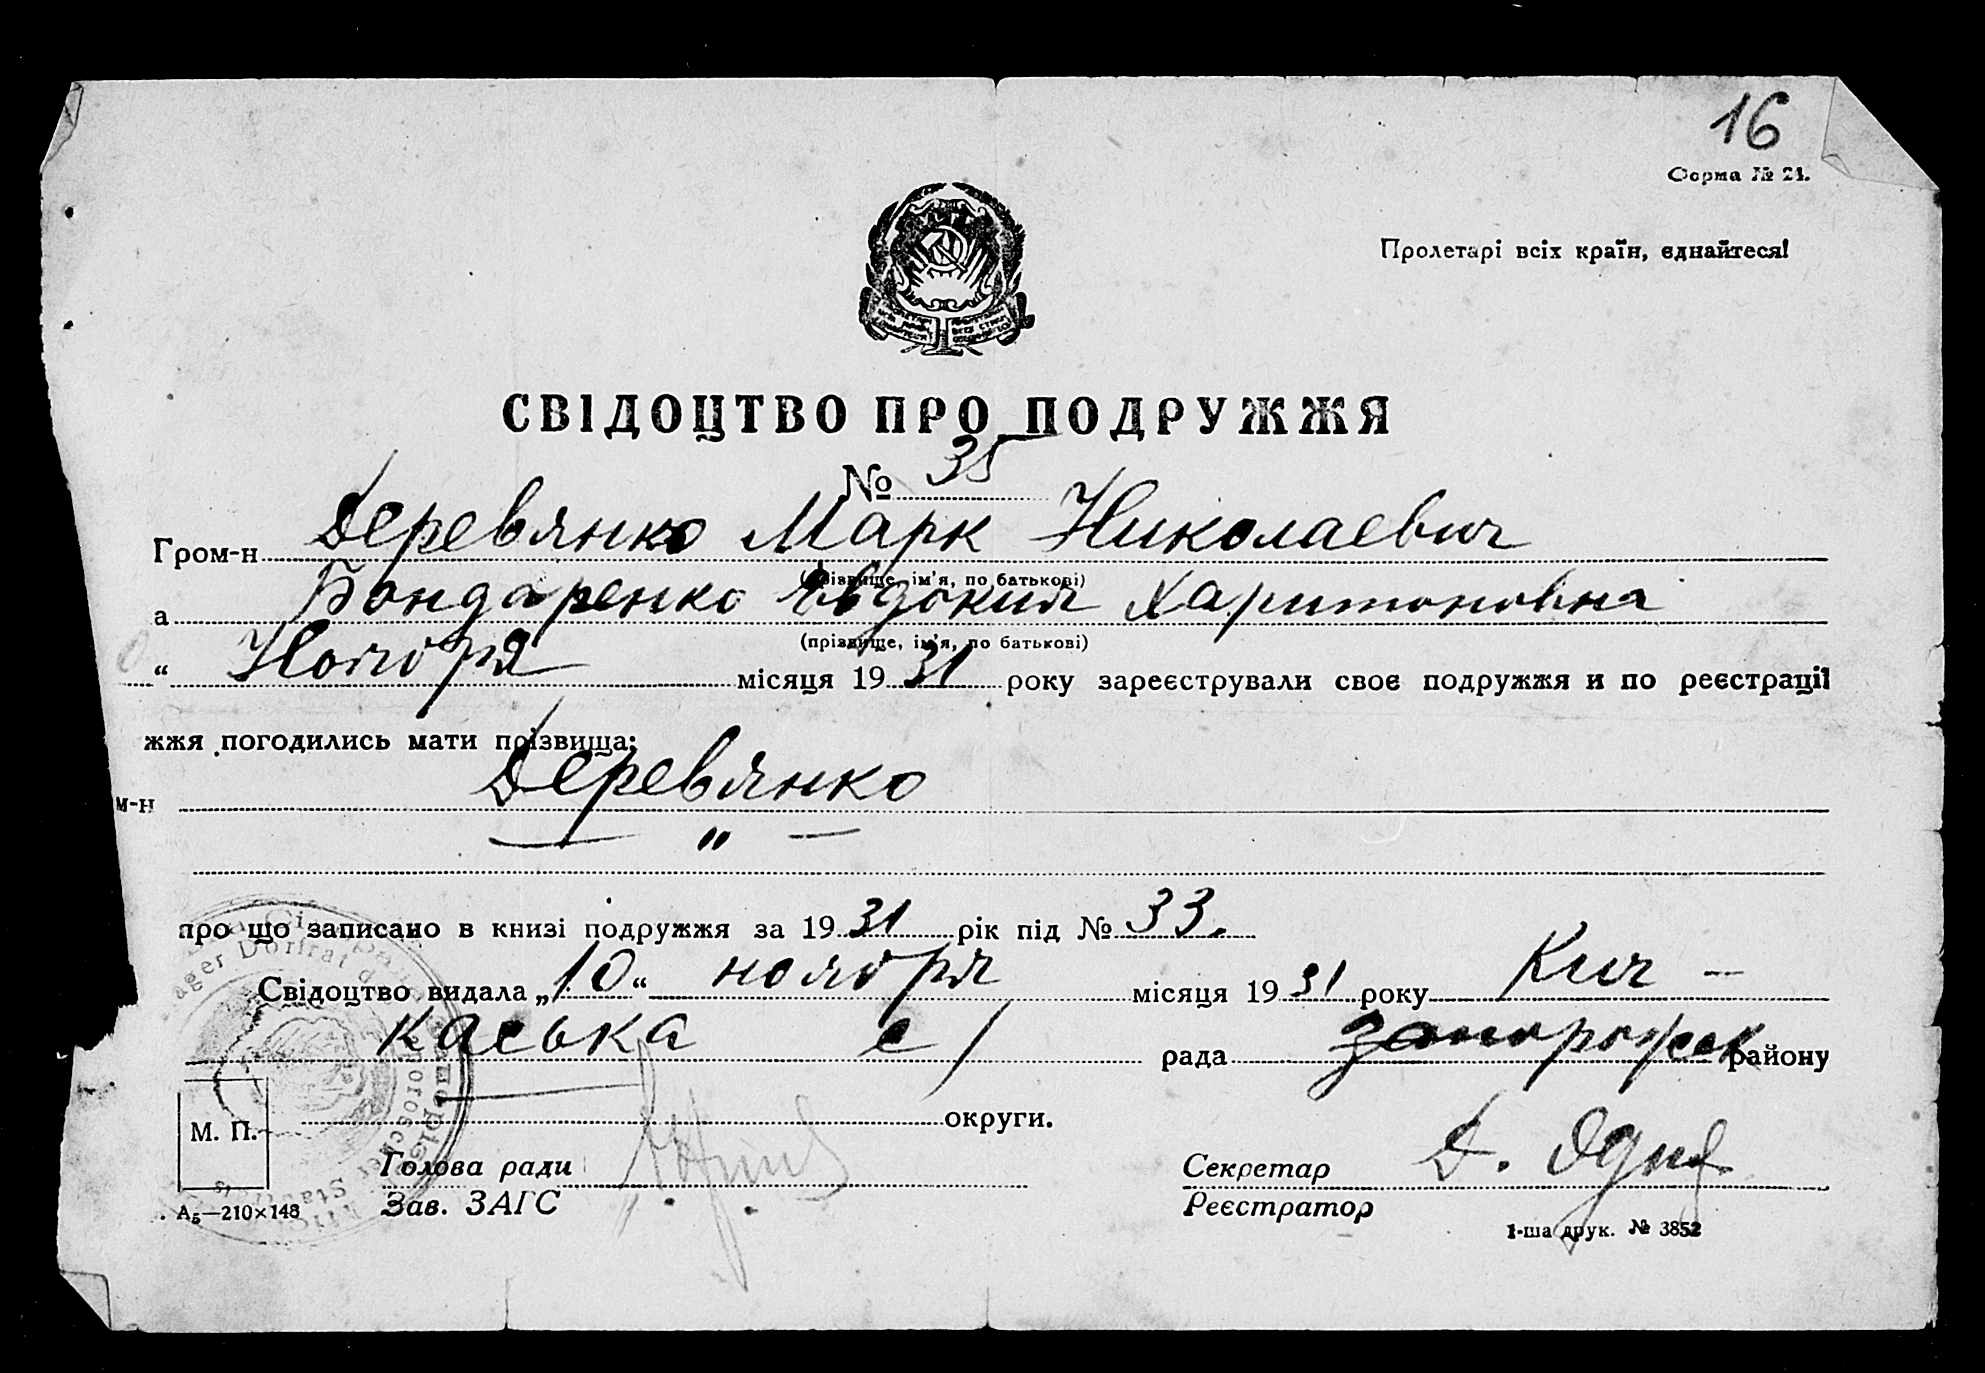 16
Форма № 24.
Пролетарі всіх країн, єднайтеся!
СВІДОЦТВО ПРО ПОДРУЖЖЯ
№ 35
Гром-н Деревянко Марк Николаевич
(прізвище, ім'я, по батькові)
а Бондаренко Евдокия Харитоновна
(прізвище, ім'я, по батькові)
“ Ноября місяця 1931 року зареєстрували своє подружжя и по реєстрації
жжя погодились мати прізвища:
м-н Деревянко
— " —
про що записано в книзі подружжя за 1931 рік під № 33.
Свідоцтво видала „10“ ноября місяця 1931 року Кич-
каська с/ рада Запорожск району
округи.
М. П.
Голова ради
Зав. ЗАГС
Секретар Д.
Реєстратор
А5—210×148
1-ша друк. № 3852
ager Dorfrat d